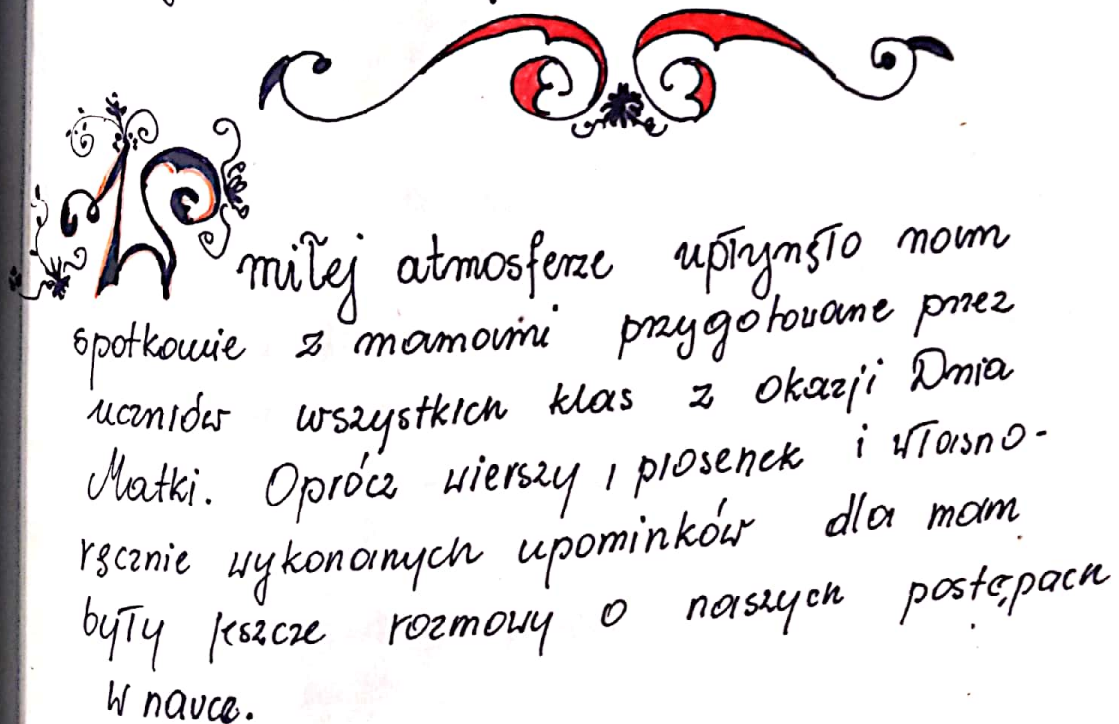 W miłej atmosferze upłynęło nam
spotkanie z mamami przygotowane przez
uczniów wszystkich klas z okazji Dnia
Matki. Oprócz wierszy i piosenek i własno-
ręcznie wykonanych upominków dla mam
były jeszcze rozmowy o naszych postępach
w nauce.